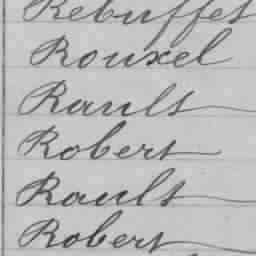 Rebuffet
Rouxel
Raults
Robert
Raults
Robert